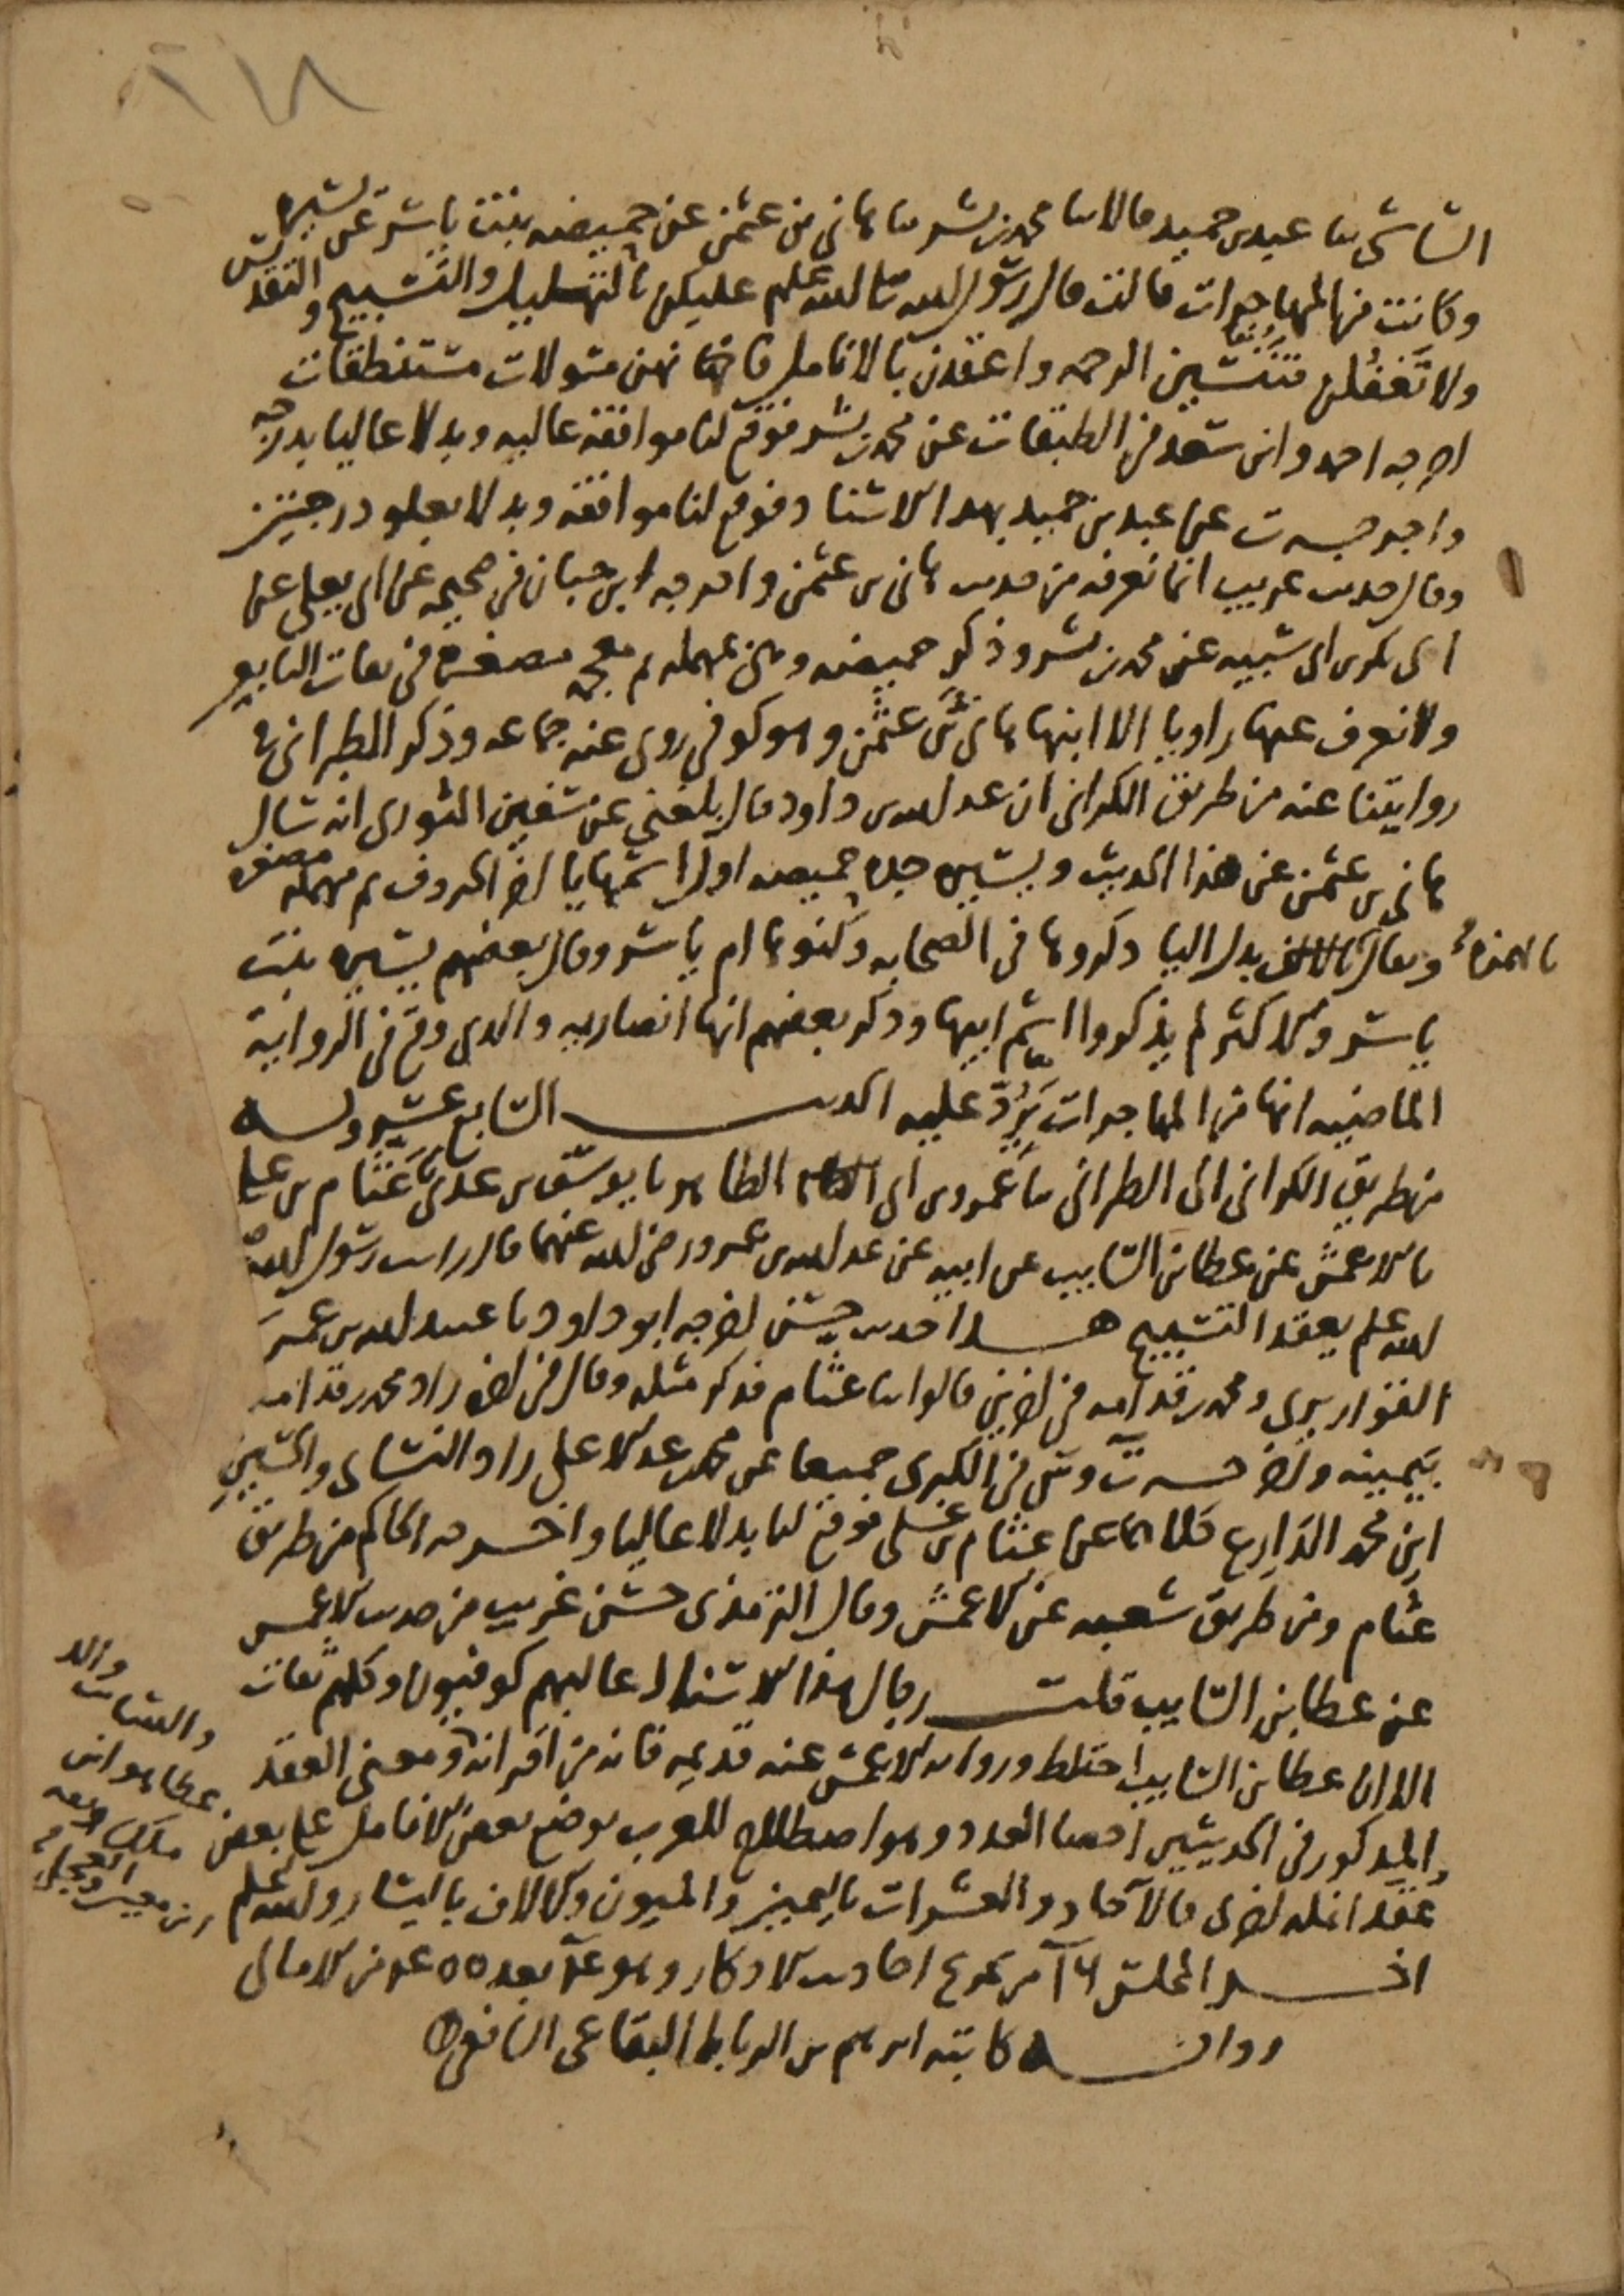 ٢١٨
الشاشي ثنا عبد بن حميد قالا ثنا محمد بن بشر ثنا هاني بن عثمن عن حميضه بنت ياسر عن يسيره
وكانت من المهاجرات قالت قال رسول الله صلى الله عليه وسلم عليكن بالتهليل والتسبيح والتقديس
ولا تغفلن فتنسين الرحمه واعقدن بالانامل فانهن مسولات مستنطقات
اخرجه احمد وابن سعد في الطبقات عن محمد بن بشر فوقع لنا موافقه عاليه وبدلا عاليا بدرجه
واخرجه ت عن عبد بن حميد بهدا الاسناد فوقع لنا موافقه وبدلا بعلو درجتين
وقال حديث غريب انما نعرفه من حديث هاني بن عثمن واخرجه ابن حبان في صحيحه عن ابي يعلى عن
ابي بكر بن ابي شيبه عن محمد بن بشر وذكر حميضه وهي بمهمله ثم معجمه مصغره في ثقات التابعين
ولا نعرف عنها راويا الا ابنها هاني بن عثمن وهو كوفي روى عنه جماعه وذكر الطبراني في
روايتنا عنه من طريق الكراني ان عبد الله بن داود قال بلغني عن سفين الثوري انه سال
هاني بن عثمن عن هذا الحديث ويسيره جده حميضه اول اسمها يا اخر الحروف ثم مهمله مصغره
ويقال بالهمزه بدل اليا ذكروها في الصحابه وكنوها ام ياسر وقال بعضهم يسيره بنت
ياسر والاكثر لم يذكروا اسم ابيها وذكر بعضهم انها انصاريه والدي وقع في الرواية
الماضيه انها من المهاجرات يرد عليه الحديث السابع عشر وبه
من طريق الكراني الى الطبراني ثنا عمرو بن ابي الطاهر نا يوسف بن عدي نا عثام بن علي
نا الاعمش عن عطا بن السايب عن ابيه عن عبد الله بن عمرو رضي الله عنهما قال رايت رسول الله صلى
الله عليه وسلم يعقد التسبيح هدا حديث حسن اخرجه ابو داود نا عبيد الله بن عمر
القواريري ومحمد بن قدامه في اخرين قالوا ثنا عثام فدكر مثله وقال في اخره زاد محمد بن قدامه
بيمينه واخرجه ت وس في الكبرى جميعا عن محمد بن عبد الاعلى زاد النساى والحسين
ابن محمد الذارع كلاهما عن عثام بن علي فوقع لنا بدلا عاليا واخرجه الحاكم من طريق
عثام ومن طريق شعبه عن الاعمش وقال الترمذى حسن غريب من حديث الاعمش
عن عطا بن السايب قلت رجال هذا الاسناد عاليهم كوفيون وكلهم ثقات
الا ان عطا بن السايب اختلط وروايه الاعمش عنه قديمه فانه من اقرانه ومعنى العقد
المدكور في الحديثين احصا العدد وهو اصطلاح للعرب بوضع بعض الانامل على بعض
عقد انمله اخرى فالآحاد والعشرات باليمين والميون والالاف باليسار والله اعلم
اخر المجلس ١٦ من تخريج احاديث الاذكار وهو بعد ٥٥ من الامالي
روايه كاتبه ابرهيم بن الرباط البقاعي الشافعي
والد
والسايب
عطا هو ابن
مالك